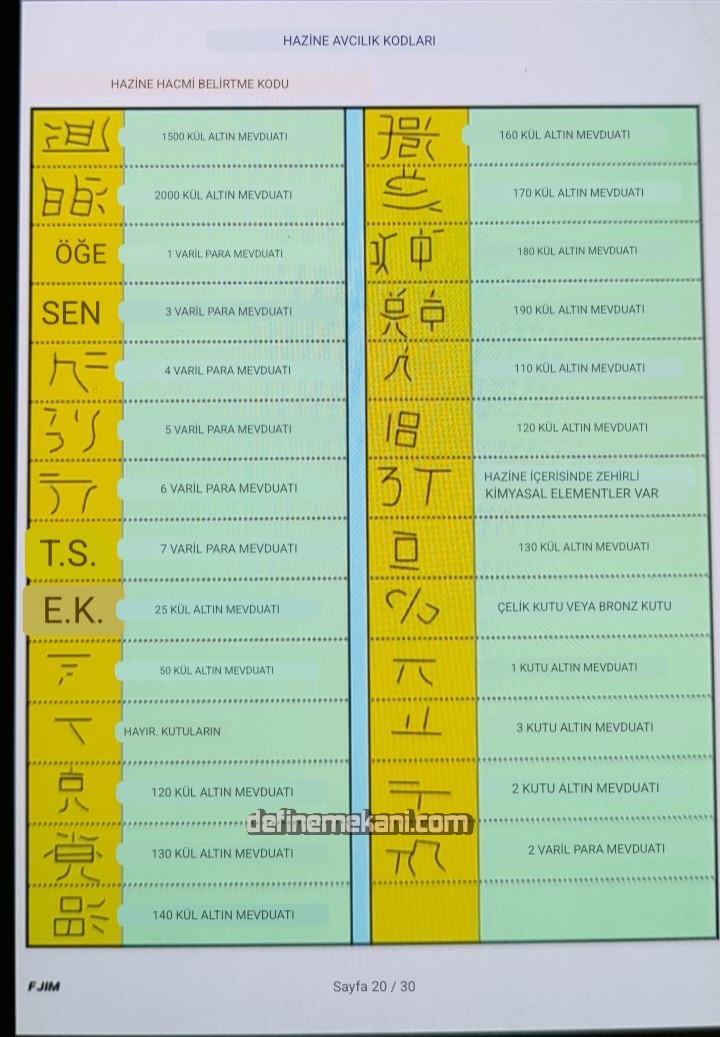 HAZİNE AVCILIK KODLARI
HAZİNE HACMİ BELİRTME KODU
1500 KÜL ALTIN MEVDUATI
2000 KÜL ALTIN MEVDUATI
ÖĞE 1 VARİL PARA MEVDUATI
SEN 3 VARİL PARA MEVDUATI
4 VARİL PARA MEVDUATI
5 VARİL PARA MEVDUATI
6 VARİL PARA MEVDUATI
T.S. 7 VARİL PARA MEVDUATI
E.K. 25 KÜL ALTIN MEVDUATI
50 KÜL ALTIN MEVDUATI
HAYIR. KUTULARIN
120 KÜL ALTIN MEVDUATI
130 KÜL ALTIN MEVDUATI
140 KÜL ALTIN MEVDUATI
160 KÜL ALTIN MEVDUATI
170 KÜL ALTIN MEVDUATI
180 KÜL ALTIN MEVDUATI
190 KÜL ALTIN MEVDUATI
110 KÜL ALTIN MEVDUATI
120 KÜL ALTIN MEVDUATI
HAZİNE İÇERİSİNDE ZEHİRLİ
KİMYASAL ELEMENTLER VAR
130 KÜL ALTIN MEVDUATI
ÇELİK KUTU VEYA BRONZ KUTU
1 KUTU ALTIN MEVDUATI
3 KUTU ALTIN MEVDUATI
2 KUTU ALTIN MEVDUATI
2 VARİL PARA MEVDUATI
definemekani.com
FJIM
Sayfa 20 / 30